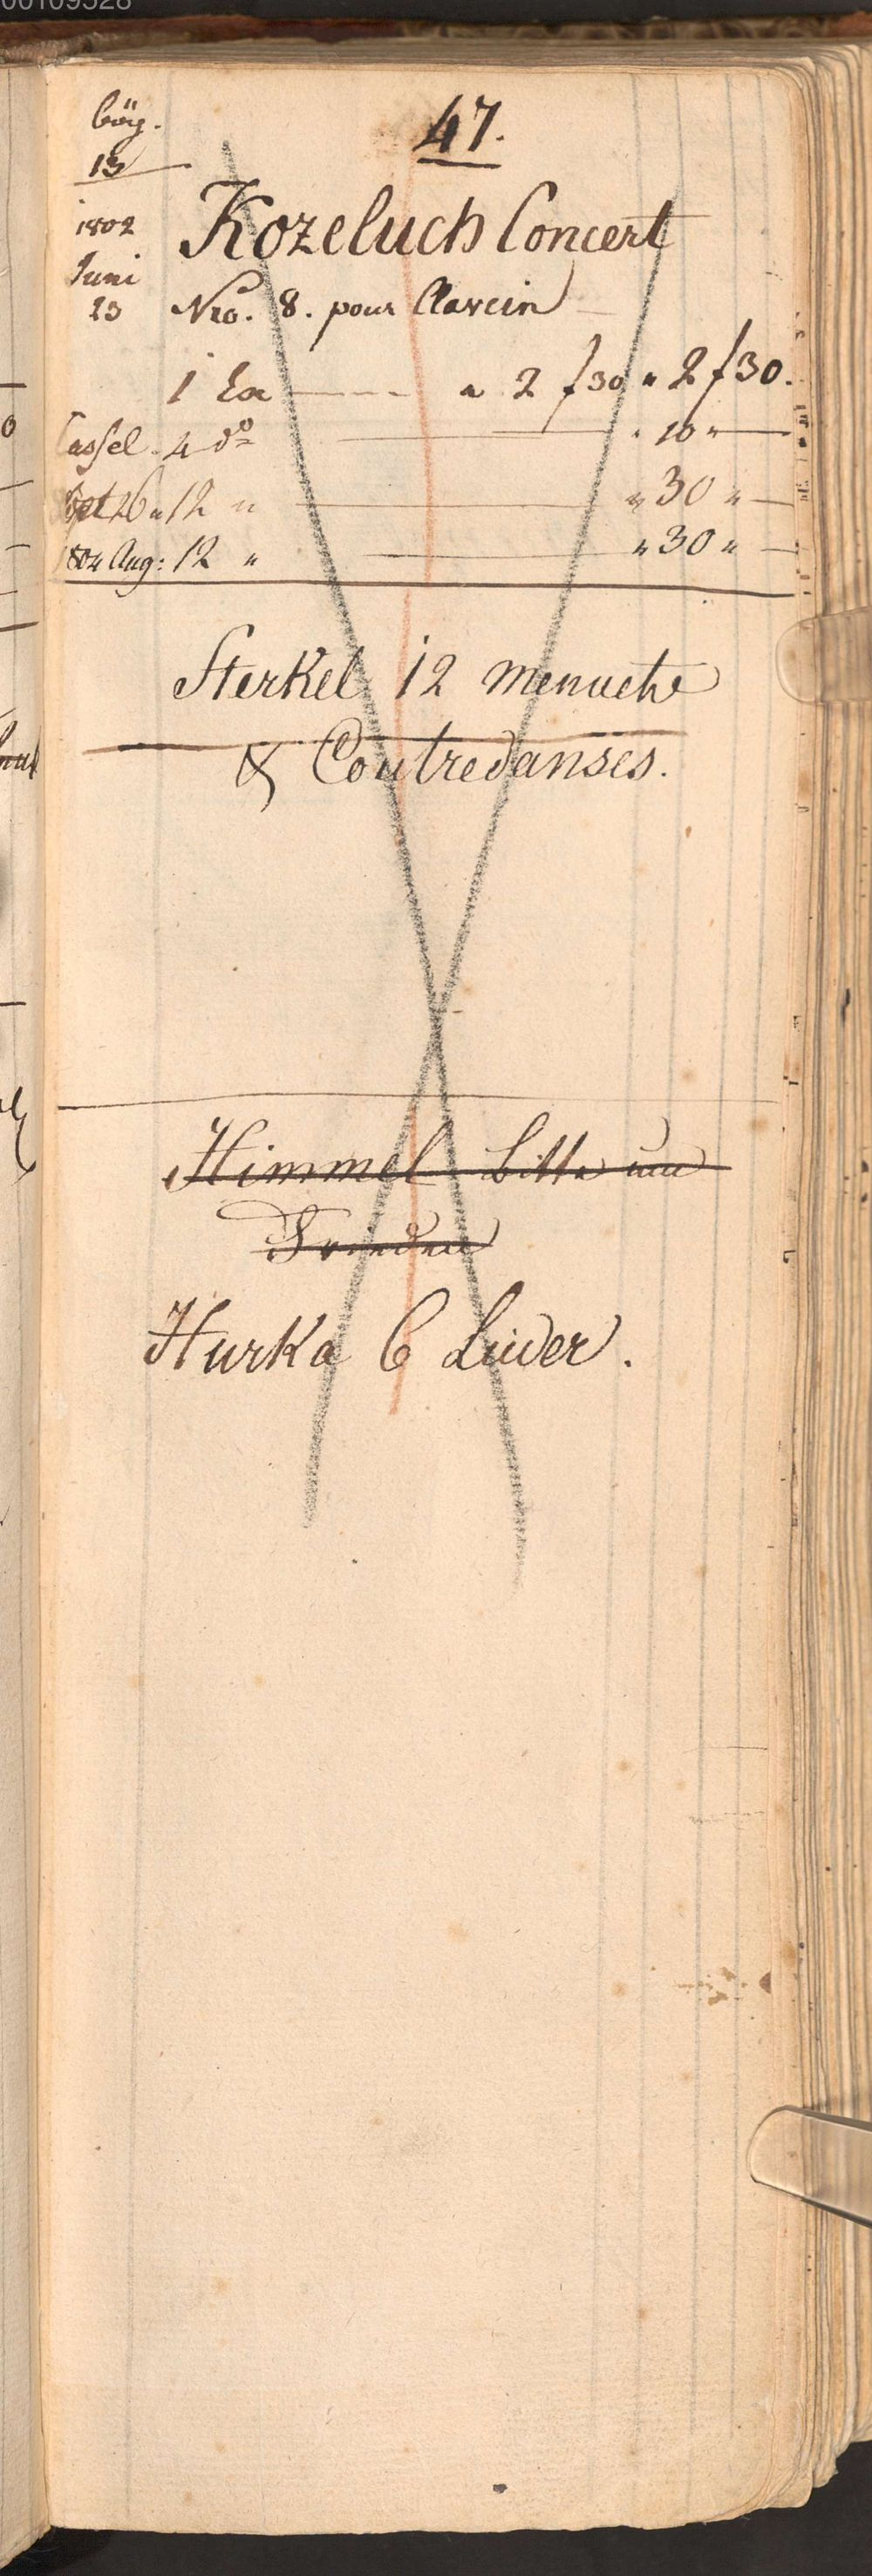 00109528
bög.
47.
13
1802
Kozeluch Concert
Juni
23 Nro. 8. pour Clavecin
1 Ex — " 2 f 30 " 2 f 30.
Cassel. 4 do — " 10 " —
Sept 26 " 12 " — " 30 " —
1804 Aug: 12 " — " 30 " —
Sterkel 12 menuette
& Contredanses.
Himmel Bitte um
Frieden
Hurka 6 Lieder.